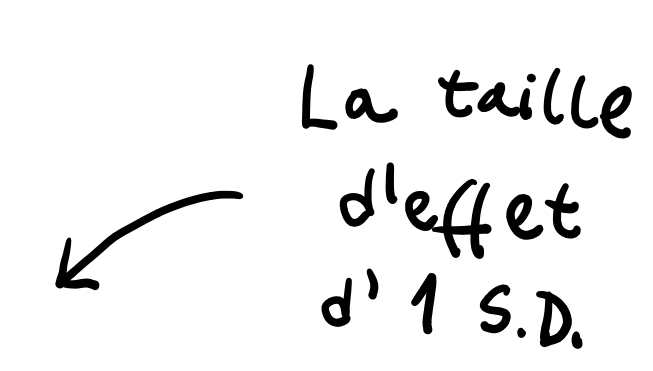 La taille
d'effet
d' 1 S.D.